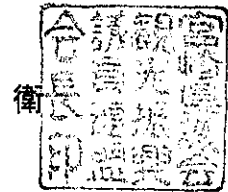 観光振興
議員連盟
会長印
衛